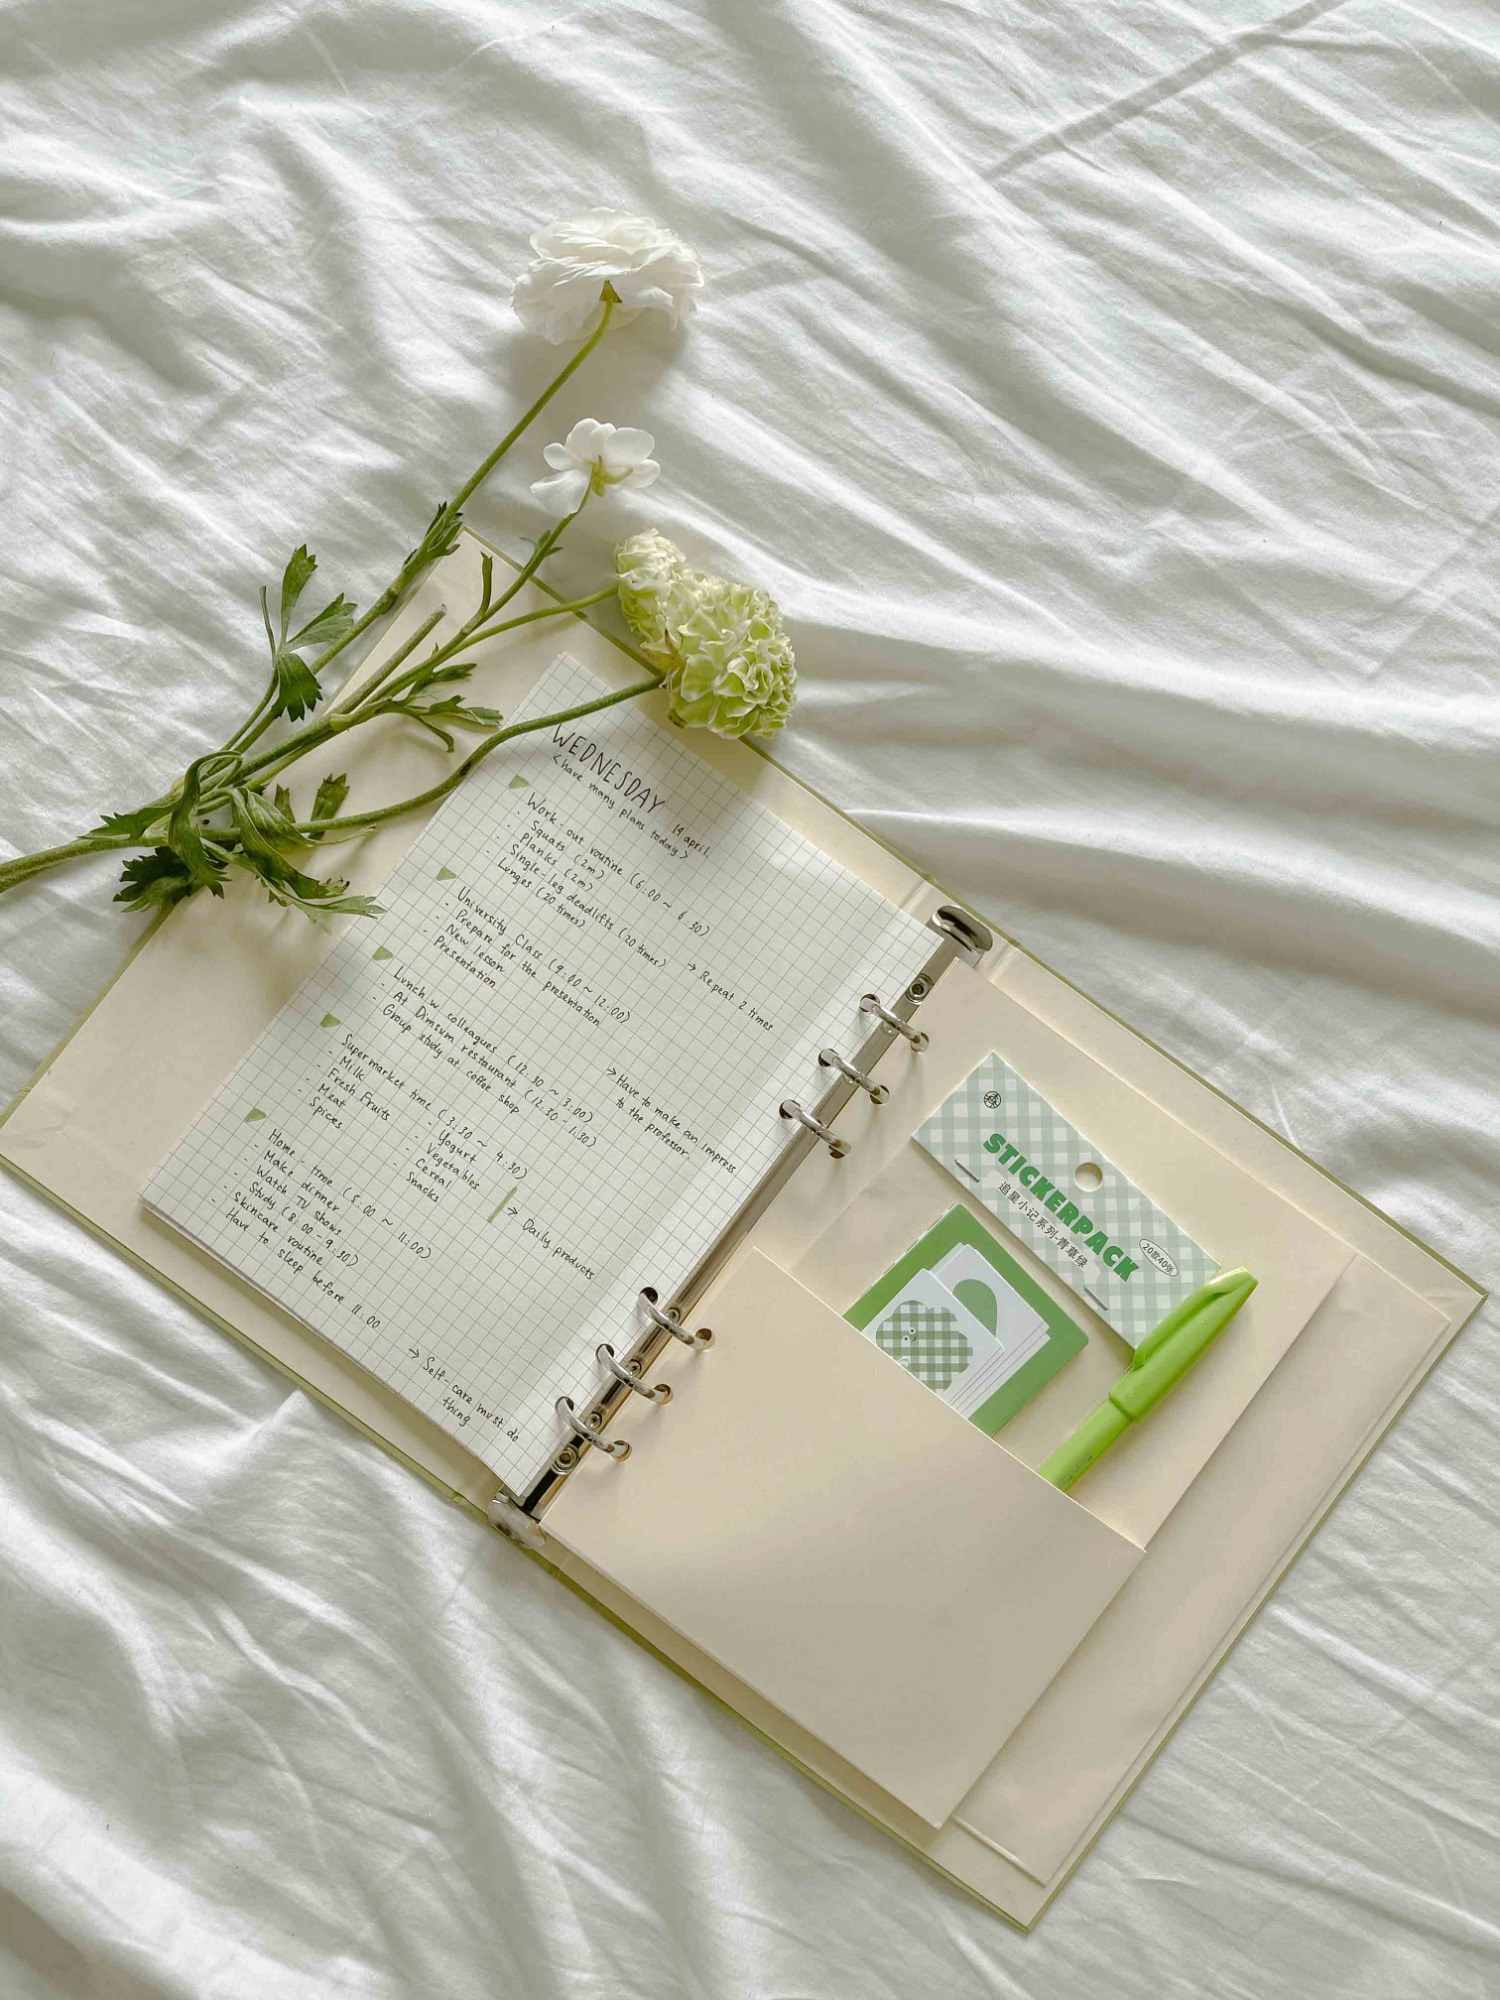 WEDNESDAY 14 april.
<have many plans today>
Work-out routine (6:00 ~ 6:30)
- Squats (2m)
- Planks (2m)
- Single-leg deadlifts (20 times)
- Lunges (20 times)
→ Repeat 2 times
University Class (9:00 ~ 12:00)
- Prepare for the presentation
- New lesson
- Presentation
→ Have to make an impress
to the professor.
Lunch w colleagues (12:30 ~ 3:00)
- At Dimsum restaurant (12:30 - 1:30)
- Group study at coffee shop
Supermarket time (3:30 ~ 4:30)
- Milk
- Fresh Fruits
- Meat
- Spices
- Yogurt
- Vegetables
- Cereal
- Snacks
→ Daily products
Home-time (5:00 ~ 11:00)
- Make dinner
- Watch TV shows
- Study (8:00-9:30)
- Skincare routine
- Have to sleep before 11:00
→ Self-care must do
thing
STICKERPACK
追星小记系列-青草绿
20款40张